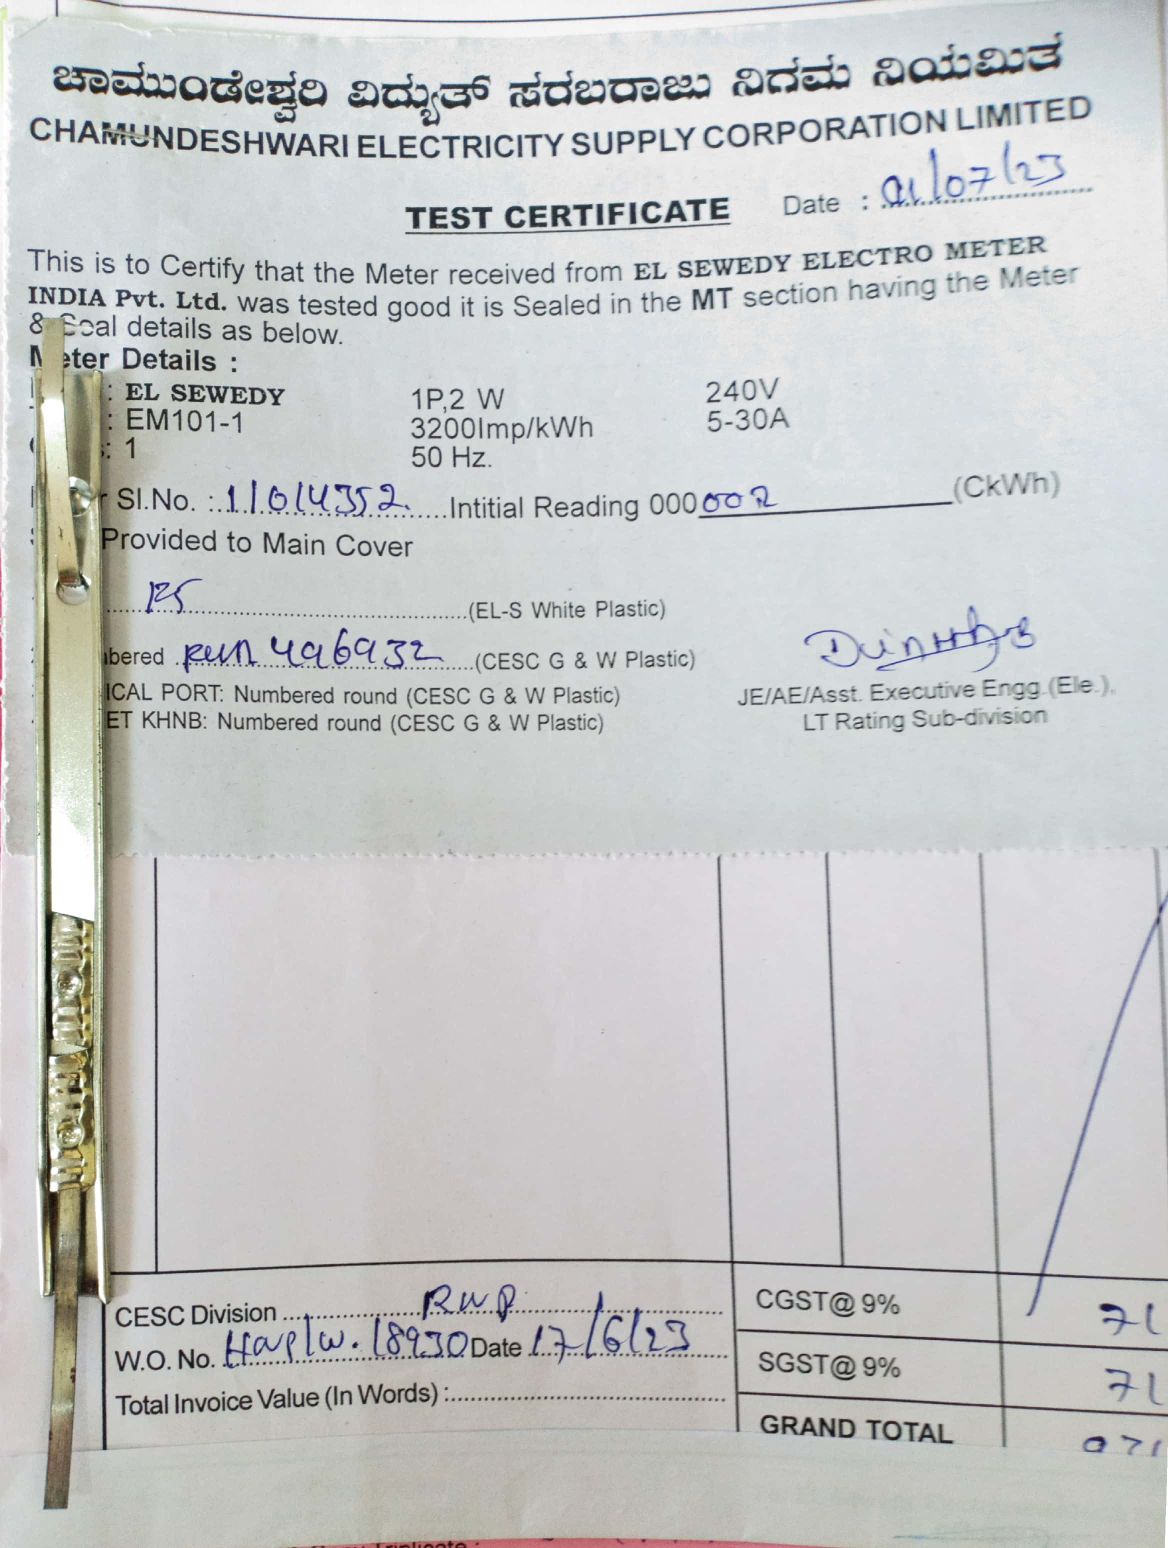 ಚಾಮುಂಡೇಶ್ವರಿ ವಿದ್ಯುತ್ ಸರಬರಾಜು ನಿಗಮ ನಿಯಮಿತ
CHAMUNDESHWARI ELECTRICITY SUPPLY CORPORATION LIMITED
TEST CERTIFICATE Date : 01/07/23
This is to Certify that the Meter received from EL SEWEDY ELECTRO METER
INDIA Pvt. Ltd. was tested good it is Sealed in the MT section having the Meter
& Seal details as below.
Meter Details :
: EL SEWEDY 1P,2 W 240V
: EM101-1 3200Imp/kWh 5-30A
: 1 50 Hz.
Sl.No. : 11014352 Intitial Reading 000002 (CkWh)
Provided to Main Cover
(EL-S White Plastic)
496932 (CESC G & W Plastic)
ICAL PORT: Numbered round (CESC G & W Plastic) JE/AE/Asst. Executive Engg.(Ele.),
ET KHNB: Numbered round (CESC G & W Plastic) LT Rating Sub-division
CESC Division CGST@ 9% 71
W.O. No. 18930 Date 17/6/23
SGST@ 9% 71
Total Invoice Value (In Words) :
GRAND TOTAL